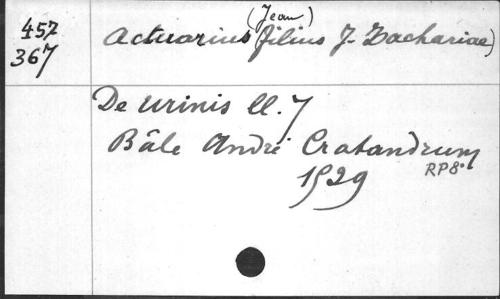 457
367
(Jean)
Actuarius (filius J. Zachariae)
De urinis ll. 7
Bâle André Cratandrum
1529
RP 8°